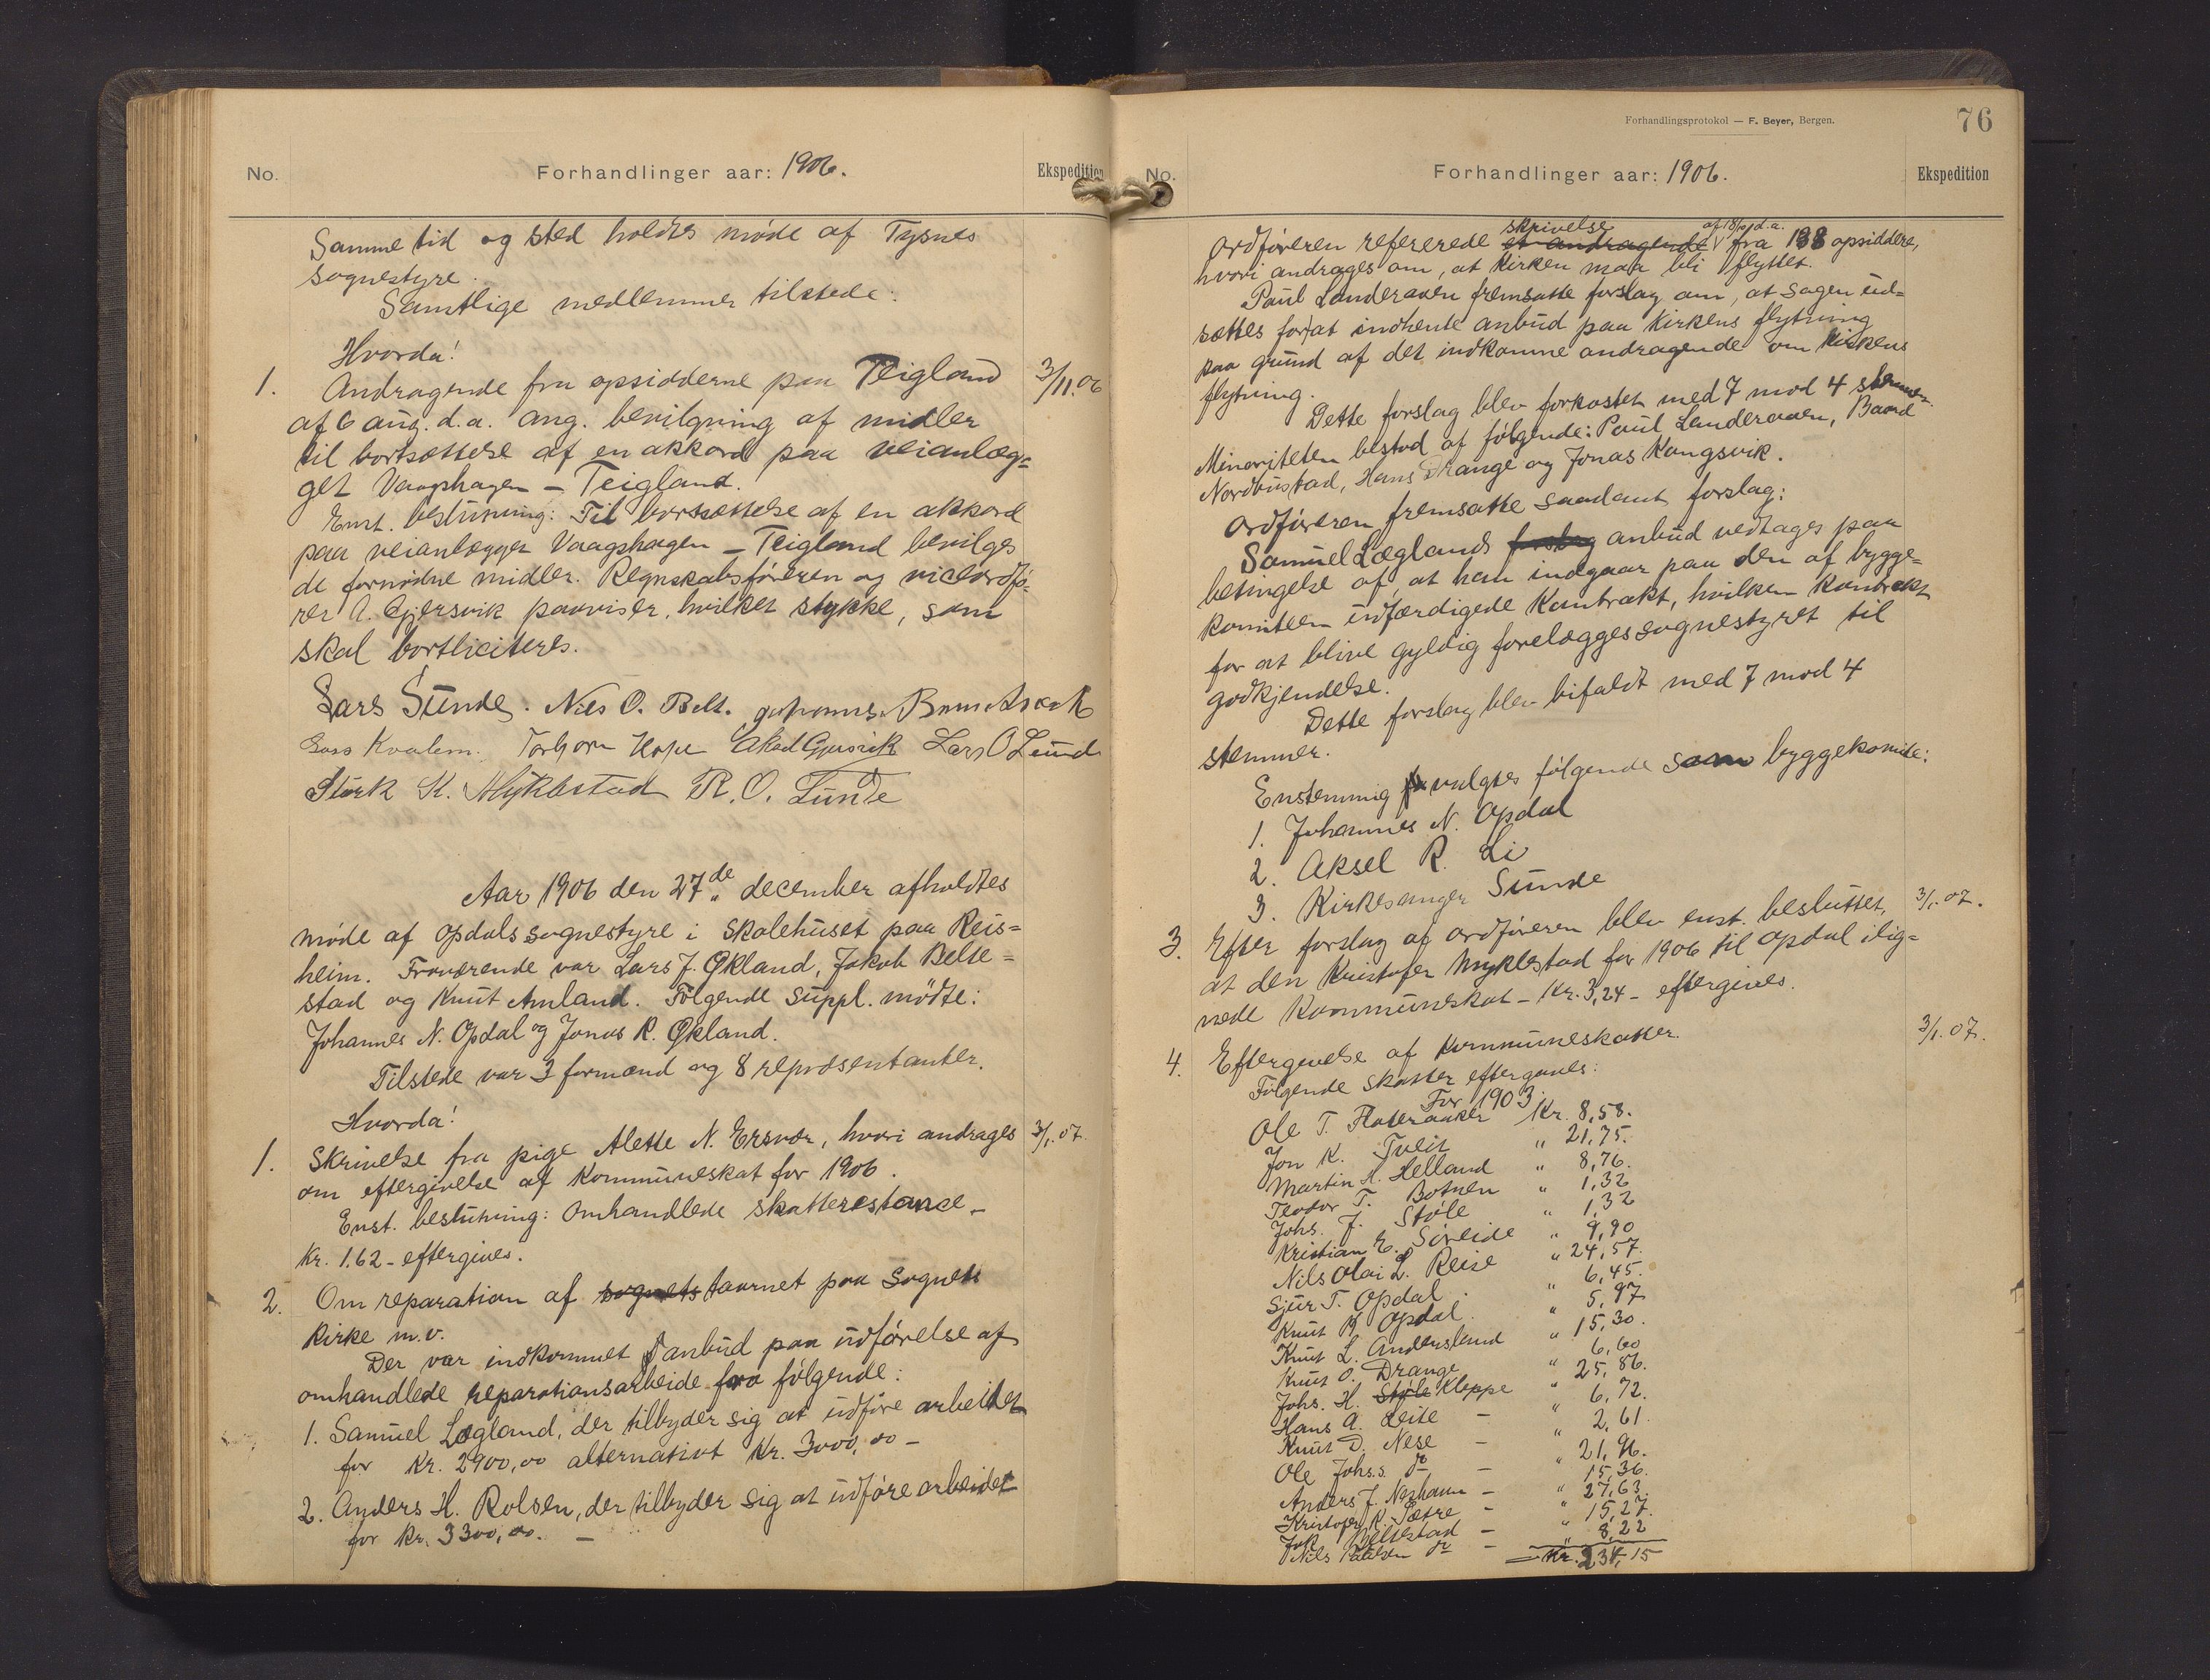 No.
Forhandlinger aar: 1906.
Ekspedition
Samme tid og sted holdtes møde af Tysnes
sognestyre.
Samtlige medlemmer tilstede.
Hvorda!
1. Andragende fra opsidderne paa Teigland 3/11.06
af 6 aug. d.a. ang. bevilgning af midler
til bortsættelse af en akkord paa veianlæg=
get Vaagshagen – Teigland.
Enst. beslutning: Til bortsættelse af en akkord
paa veianlægget Vaagshagen – Teigland bevilges
de fornødne midler. Regnskabsføreren og viceordfø-
rer A. Gjersvik paaviser, hvilket stykke, som
skal bortliciteres.
Lars Sunde. Nils O. Belt. Johannes
Lars Kvalem. Torbjørn Hope Aksel Gjersvik Lars O Lunde
Størk K. Myklestad R. O. Lunde
Aar 1906 den 27de december afholdtes
møde af Opdals sognestyre i Skolehuset paa Reis=
heim. Fraværende var Lars J. Økland, Jakob Belte=
stad og Knut Amland. Følgende suppl. mødte:
Johannes N. Opdal og Jonas R. Økland.
Tilstede var 3 formænd og 8 repræsentanter.
Hvorda!
1. Skrivelse fra pige Alette N. Ersvær, hvori andrages 3/1.07.
om eftergivelse af Kommuneskat for 1906.
Enst. beslutning: Omhandlede skatterestance –
Kr. 1.62 – eftergives.
2. Om reparation af sognets taarnet paa Sognets
Kirke m.v.
Der var indkommet anbud paa udførelse af
omhandlede reparationsarbeide fra følgende:
1. Samuel Lægland, der tilbyder sig at udføre arbeidet
for Kr. 2900,00 alternativt Kr. 3000,00 –
2. Anders H. Rolsen, der tilbyder sig at udføre arbeidet
for Kr. 3300,00. –
Forhandlingsprotokol — F. Beyer, Bergen.
76
No.
Forhandlinger aar: 1906.
Ekspedition
skrivelse af 18/10 d.a.
Ordføreren refererede et andragende fra 188 opsiddere,
hvori andrages om, at Kirken maa bli flyttet.
Paul Landeraaen fremsatte forslag om, at sagen ud=
sættes for at indhente anbud paa Kirkens flytning
paa grund af det indkomne andragende om kirkens
flytning.
Dette forslag blev forkastet med 7 mod 4 stemmer.
Minoriteten bestod af følgende: Paul Landeraaen, Baard
Nordbustad, Hans Drange og Jonas Kongsvik.
Ordføreren fremsatte saadant forslag:
Samuel Læglands forslag anbud vedtages paa
betingelse af, at han indgaar paa den af bygge=
komiteen udfærdigede Kontrakt, hvilken Kontrakt
for at blive gyldig forelægges sognestyret til
godkjendelse.
Dette forslag blev bifaldt med 7 mod 4
stemmer.
Enstemmig valgtes følgende som byggekomite:
1. Johannes N. Opdal
2. Aksel R. Li
3. Kirkesanger Sunde
3. Efter forslag af ordføreren blev enst. besluttet, 3/1.07.
at den Kristofer Myklestad for 1906 til Opdal ilig=
nede Kommuneskat – Kr. 3,24 – eftergives.
4. Eftergivelse af Kommuneskatter. 3/1.07.
Følgende skatter eftergives:
For 1903.
Ole T. Flateraaker Kr. 8,58.
Jon K. Tveit " 21,75.
Martin A. Helland " 8,76.
Teodor T. Botnen " 1,32
Johs. J. Støle " 1,32
Kristian E. Søreide " 9,90
Nils Olai L. Reise " 24,57.
Sjur T. Opdal " 6,45.
Knut Opdal " 5,97
Knut L. Andersland " 15,30.
Knut O. Drange " 6,60
Johs. H. Støle Kleppe " 25,86.
Hans A. Leite – " 6,72.
Knut D. Nese – " 2,61.
Ole Johs.s. do – " 21,96.
Anders J. – 15,36.
Kristofer K. Sætre – " 27,63.
Jak. Beltestad – " 15,27.
Nils Paulsen do – " 8,22
Kr. 234,15